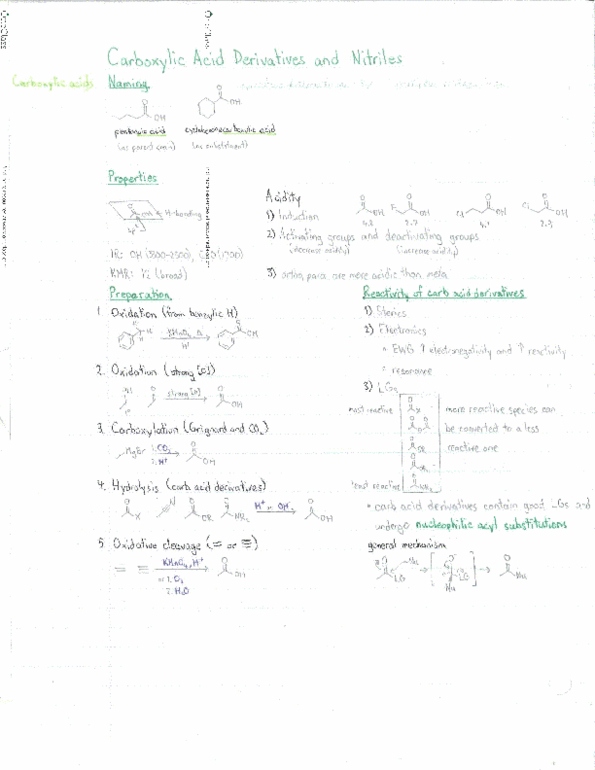 Carboxylic Acid Derivatives and Nitriles
Carboxylic acids
Naming
OH
OH
pentanoic acid
cyclohexanecarboxylic acid
(as parent chain)
(as substituent)
Properties
H-bonding
sp²
IR: OH (3500-2500), C=O (1700)
HNMR: 12 (broad)
Acidity
1) Induction
2) Activating groups and deactivating groups
(decrease acidity) (increase acidity)
3) ortho, para are more acidic than meta
Preparation
1. Oxidation (from benzylic H)
KMnO₄, Δ
H⁺
OH
2. Oxidation (strong [O])
strong [O]
OH
3. Carboxylation (Grignard and CO₂)
MgBr
1. CO₂
2. H⁺
OH
4. Hydrolysis (carb acid derivatives)
X
OR
NR₂
H⁺ or OH⁻
OH
5. Oxidative cleavage (= or ≡)
KMnO₄, H⁺
or 1. O₃
2. H₂O
OH
Reactivity of carb acid derivatives
1) Sterics
2) Electronics
• EWG ↑ electronegativity and ↑ reactivity
• resonance
3) LGs
most reactive
least reactive
more reactive species can
be converted to a less
reactive one
• carb acid derivatives contain good LGs and
undergo nucleophilic acyl substitutions
general mechanism
Nu
LG
Nu
Nu